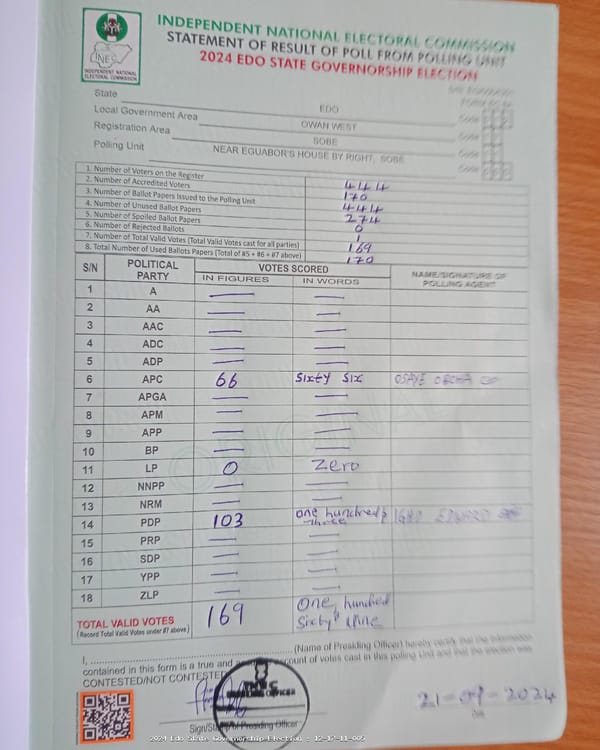 INDEPENDENT NATIONAL ELECTORAL COMMISSION
STATEMENT OF RESULT OF POLL FROM POLLING UNIT
2024 EDO STATE GOVERNORSHIP ELECTION
INEC
INDEPENDENT NATIONAL
ELECTORAL COMMISSION
State EDO Code
Local Government Area OWAN WEST Code
Registration Area SOBE Code
Polling Unit NEAR EGUABOR'S HOUSE BY RIGHT, SOBE Code
1. Number of Voters on the Register 444
2. Number of Accredited Voters 170
3. Number of Ballot Papers Issued to the Polling Unit 444
4. Number of Unused Ballot Papers 274
5. Number of Spoiled Ballot Papers 0
6. Number of Rejected Ballots 1
7. Number of Total Valid Votes (Total Valid Votes cast for all parties) 169
8. Total Number of Used Ballots Papers (Total of #5 + #6 + #7 above) 170
S/N POLITICAL PARTY VOTES SCORED NAME/SIGNATURE OF POLLING AGENT
IN FIGURES IN WORDS
1 A — —
2 AA — —
3 AAC — —
4 ADC — —
5 ADP — —
6 APC 66 Sixty Six OSAYE
7 APGA — —
8 APM — —
9 APP — —
10 BP — —
11 LP 0 Zero
12 NNPP — —
13 NRM — —
14 PDP 103 one hundred & three EDWARD
15 PRP — —
16 SDP — —
17 YPP — —
18 ZLP — —
TOTAL VALID VOTES 169 One hundred Sixty Nine
(Record Total Valid Votes under #7 above)
I, (Name of Presiding Officer) hereby certify that the information
contained in this form is a true and count of votes cast in this polling Unit and that the election was
CONTESTED/NOT CONTESTED
21-09-2024
Sign/Stamp of Presiding Officer
2024 Edo State Governorship Election : 12-17-11-005